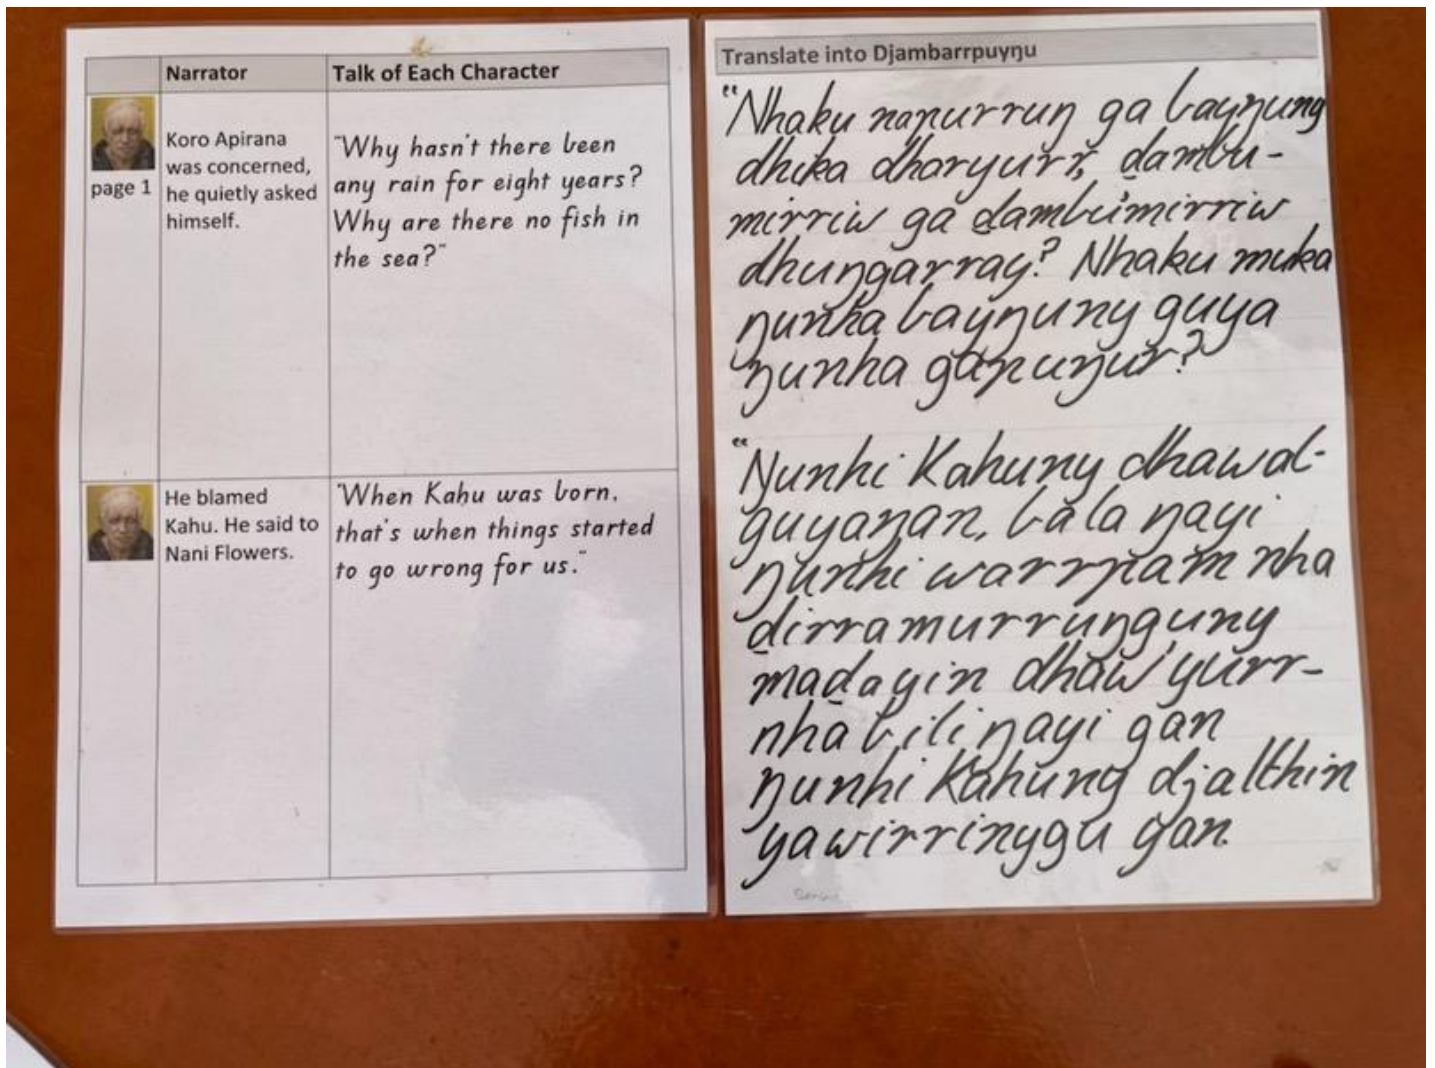 Narrator
Talk of Each Character
page 1
Koro Apirana
was concerned,
he quietly asked
himself.
"Why hasn't there been
any rain for eight years?
Why are there no fish in
the sea?"
He blamed
Kahu. He said to
Nani Flowers.
"When Kahu was born,
that's when things started
to go wrong for us."
Translate into Djambarrpuyŋu
"Nhaku napurruŋ ga bayŋung
dhika dharyurr, ḏambu-
mirriw ga ḏambu'mirriw
dhuŋgarray? Nhaku muka
ŋunha bayŋuny guya
ŋunha gapuŋur?
"Ŋunhi Kahuny dhawal-
guyaŋan, bala ŋayi
ŋunhi warrpam nha
ḏirramurruŋguny
maḏayin dhaw'yurr-
nha bili ŋayi gan
ŋunhi Kahuny djalthin
yawirrinygu gan.